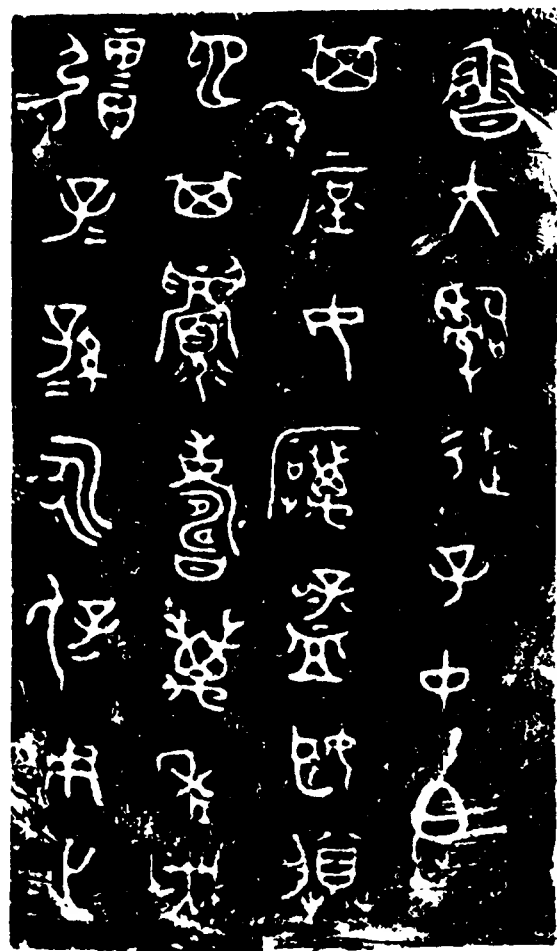 魯大司徒子中白
其庶女厲孟姬媵
它其眉壽萬年無
疆子=孫=永保用之